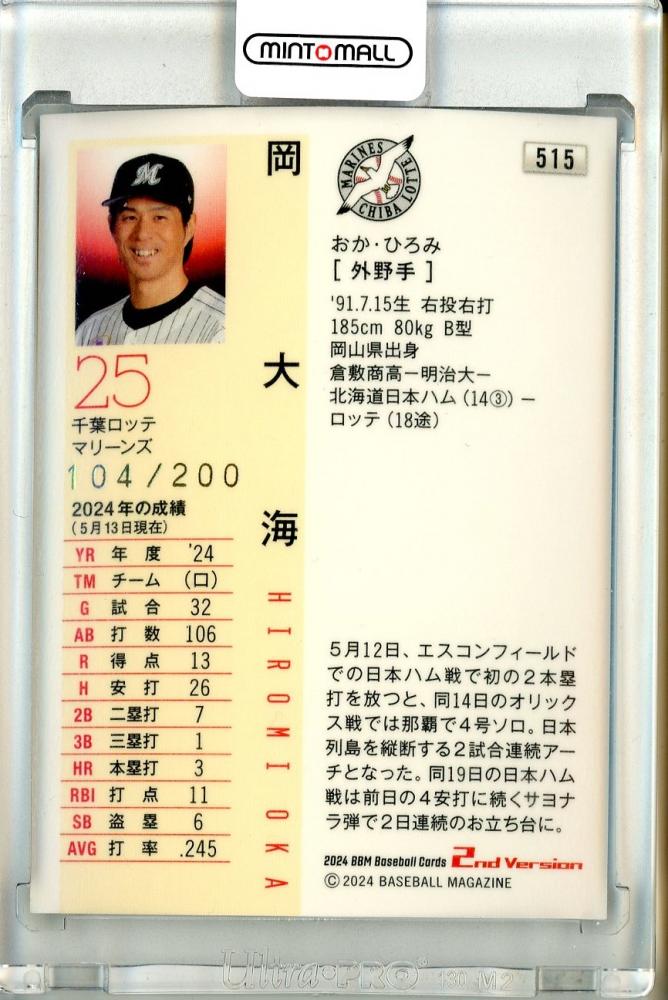 MINTOMALL
515
MARINES
CHIBA LOTTE
M
岡大海
HIROMI OKA
おか・ひろみ
[ 外野手 ]
'91.7.15生 右投右打
185cm 80kg B型
岡山県出身
倉敷商高ー明治大ー
北海道日本ハム(14③)ー
ロッテ(18途)
25
千葉ロッテ
マリーンズ
104/200
2024年の成績
(5月13日現在)
YR 年度 '24
TM チーム (ロ)
G 試合 32
AB 打数 106
R 得点 13
H 安打 26
2B 二塁打 7
3B 三塁打 1
HR 本塁打 3
RBI 打点 11
SB 盗塁 6
AVG 打率 .245
5月12日、エスコンフィールド
での日本ハム戦で初の2本塁
打を放つと、同14日のオリック
ス戦では那覇で4号ソロ。日本
列島を縦断する2試合連続アー
チとなった。同19日の日本ハム
戦は前日の4安打に続くサヨナ
ラ弾で2日連続のお立ち台に。
2024 BBM Baseball Cards 2nd Version
©2024 BASEBALL MAGAZINE
Ultra•PRO® 130-M2